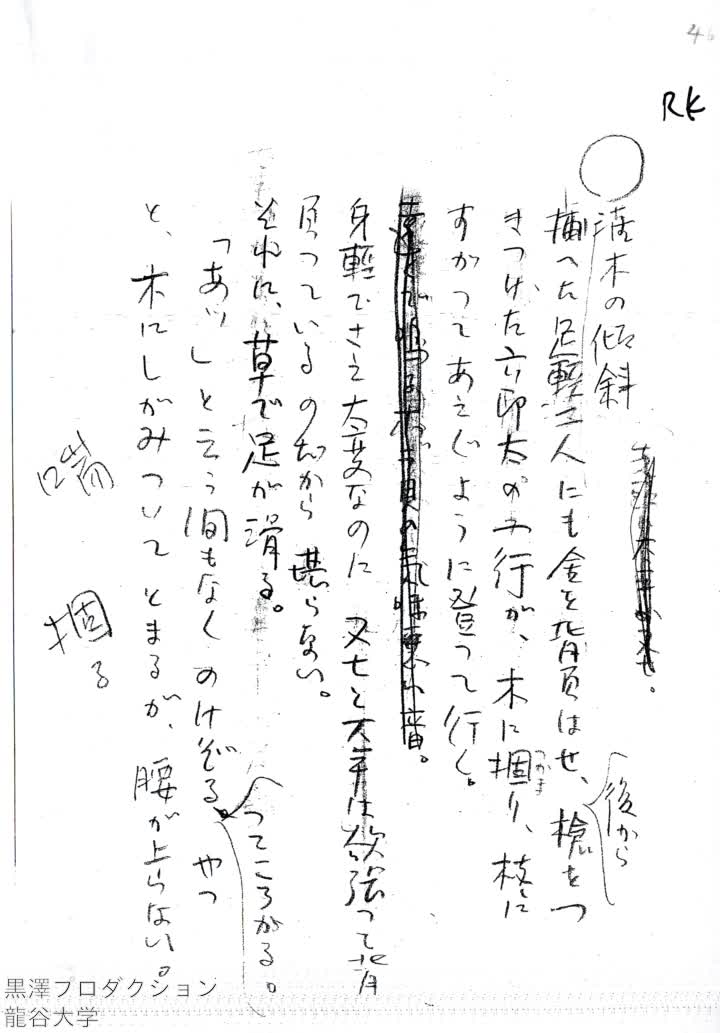 46
RK
潅木の傾斜
捕へた足軽二人にも金を背負はせ、槍をつ
後から
きつけた六郎太の一行が、木に掴り、枝に
つかま
すがつてあえぐように登つて行く。
身軽でさえ大変なのに 又七と太平は欲張つて背
負つているのだから 堪らない。
それに、草で足が滑る。
「あッ」と言う間もなくのけぞる。やつ
つてころがる。
と、木にしがみついてとまるが、腰が上らない。
喘
掴る
黒澤プロダクション
龍谷大学